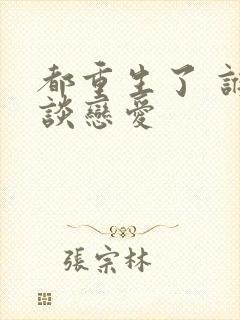 都重生了
談戀愛
張宗林